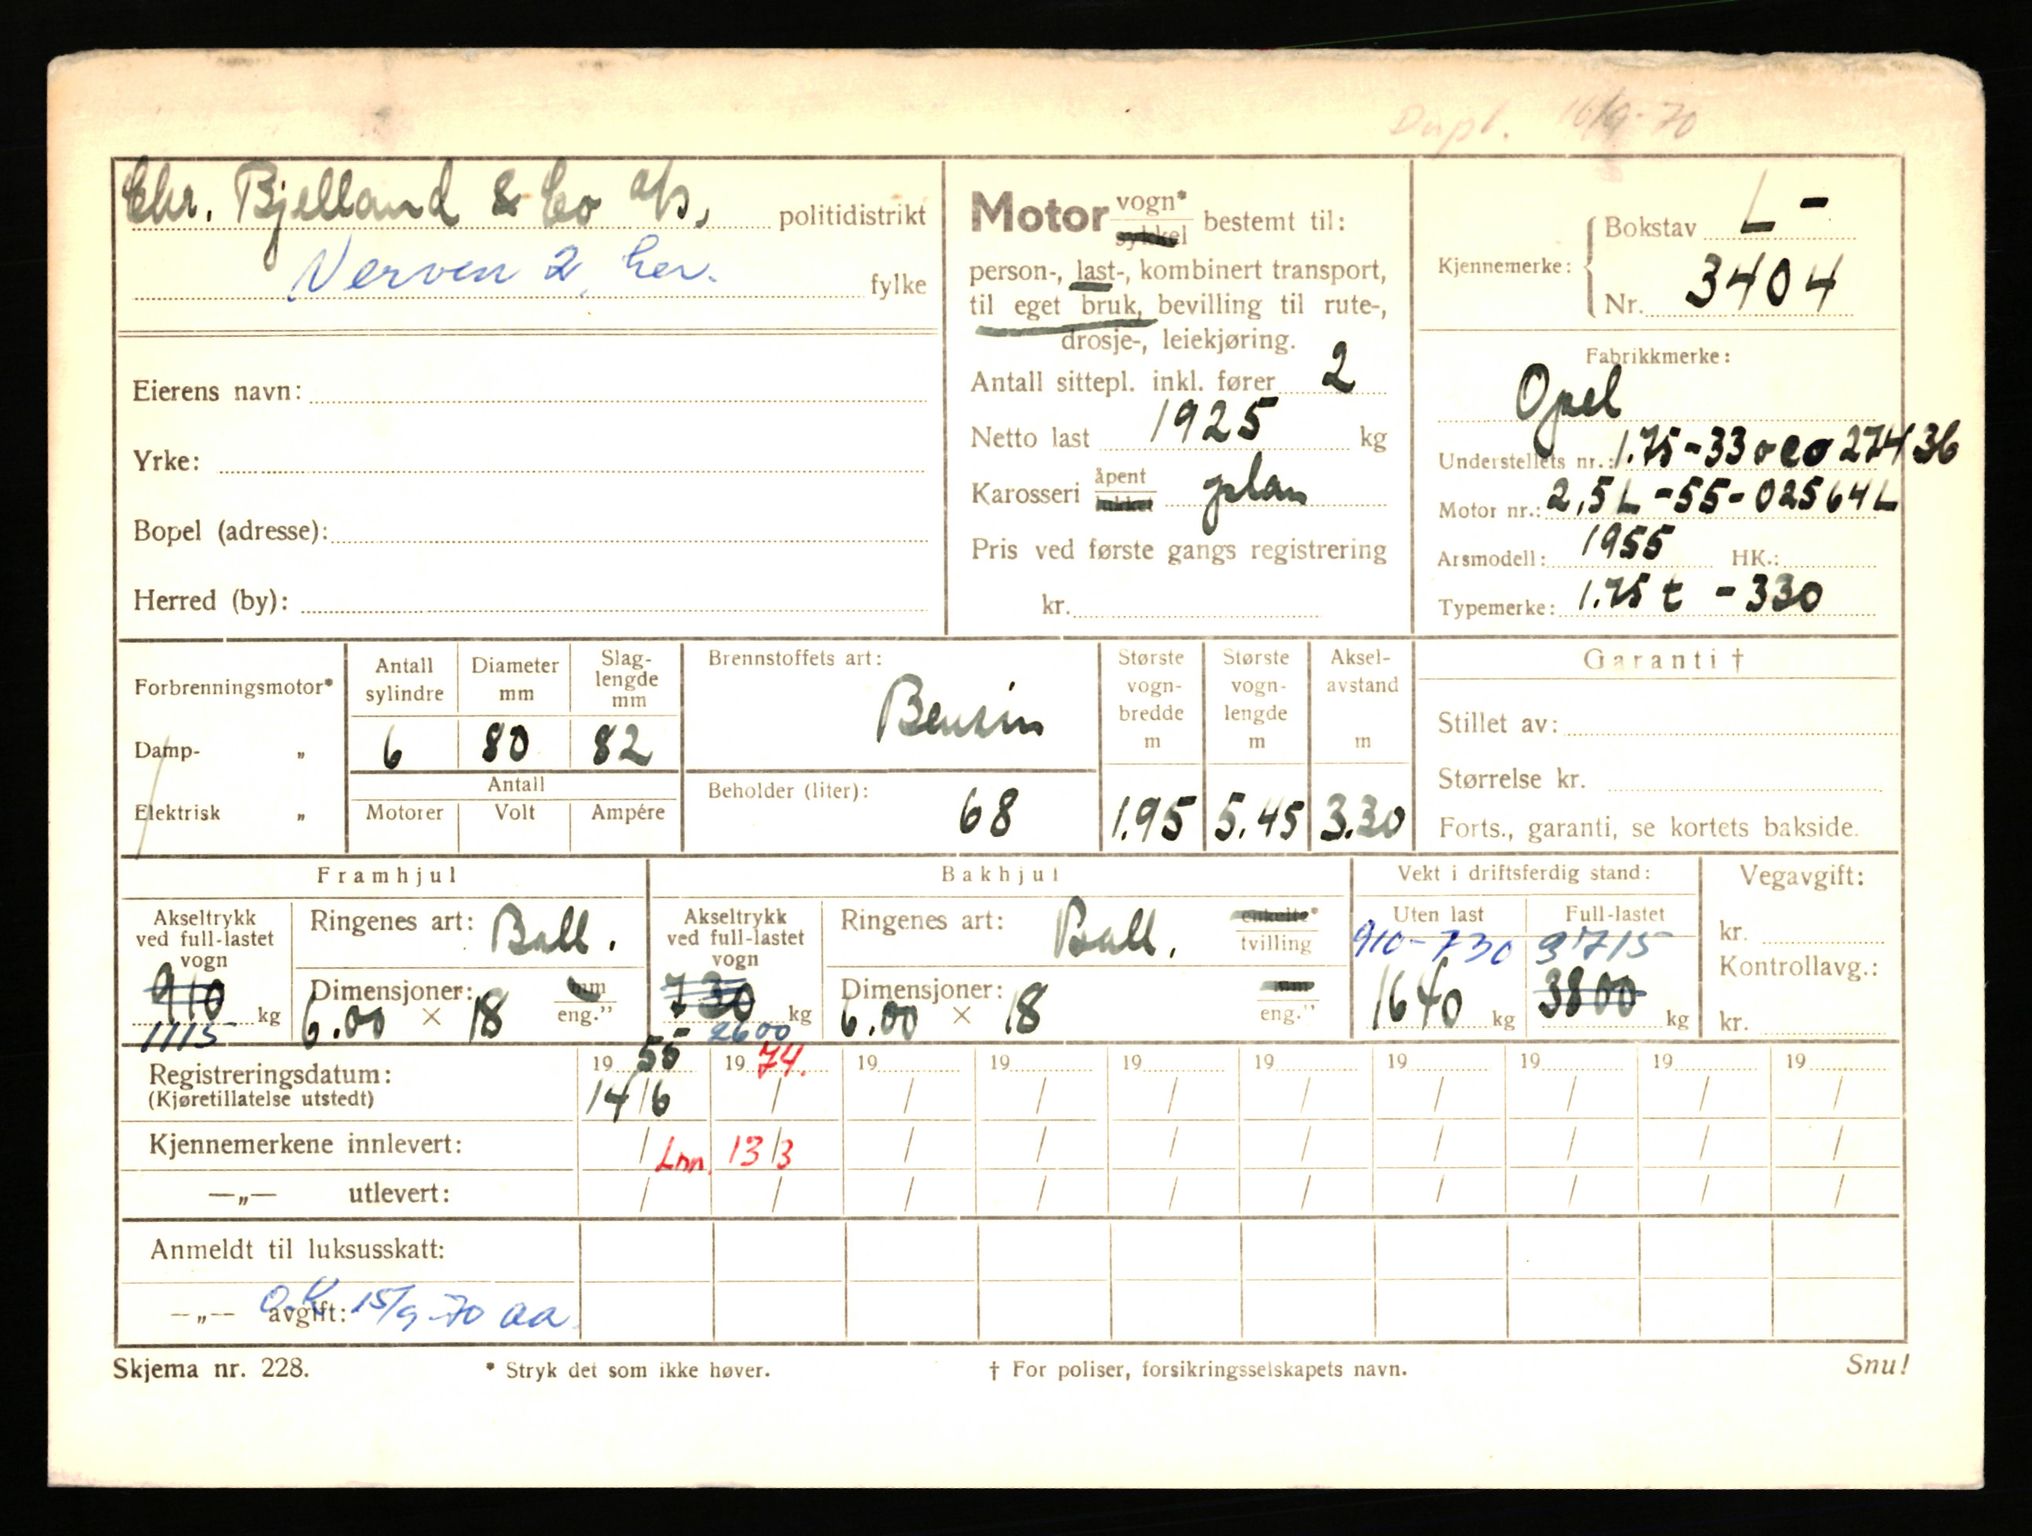 Dupl. 16/9-70
Chr. Bjelland & Co a/s, politidistrikt
Verven 2, her. fylke
Eierens navn:
Yrke:
Bopel (adresse):
Herred (by):
Motor vogn* sykkel bestemt til:
person-, last-, kombinert transport,
til eget bruk, bevilling til rute-,
drosje-, leiekjøring.
Antall sittepl. inkl. fører 2
Netto last 1925 kg
Karosseri åpent lukket plan
Pris ved første gangs registrering
kr.
Kjennemerke: Bokstav L-
Nr. 3404
Fabrikkmerke:
Opel
Understellets nr.: 1.75-33 oeo 27436
Motor nr.: 2,5L-55-02564L
Arsmodell: 1955 HK.:
Typemerke: 1.75 t -330
Forbrenningsmotor*
Damp- „
Elektrisk „
Antall sylindre
6
Diameter mm
80
Slag- lengde mm
82
Antall
Motorer Volt Ampére
Brennstoffets art:
Bensin
Beholder (liter):
68
Største vogn- bredde m
1.95
Største vogn- lengde m
5.45
Aksel- avstand m
3.30
Garanti †
Stillet av:
Størrelse kr.
Forts., garanti, se kortets bakside.
Framhjul
Akseltrykk
ved full-lastet
vogn
910 kg
1115
Ringenes art: Ball.
Dimensjoner: mm
6.00 × 18 eng."
Bakhjul
Akseltrykk
ved full-lastet
vogn
730 kg
2600
Ringenes art: Ball. enkelte*
tvilling
Dimensjoner: mm
6.00 × 18 eng."
Vekt i driftsferdig stand:
Uten last
910-730
1640 kg
Full-lastet
3715
3800 kg
Vegavgift:
kr.
Kontrollavg.:
kr.
Registreringsdatum: 19 55 19 74. 19 19 19 19 19 19 19 19
(Kjøretillatelse utstedt) 14/6 / / / / / / / / /
Kjennemerkene innlevert: / Inn. 13/3 / / / / / / / /
—„— utlevert: / / / / / / / / / /
Anmeldt til luksusskatt:
—„— avgift: O.K 15/9-70 aa.
Skjema nr. 228. * Stryk det som ikke høver. † For poliser, forsikringsselskapets navn. Snu!